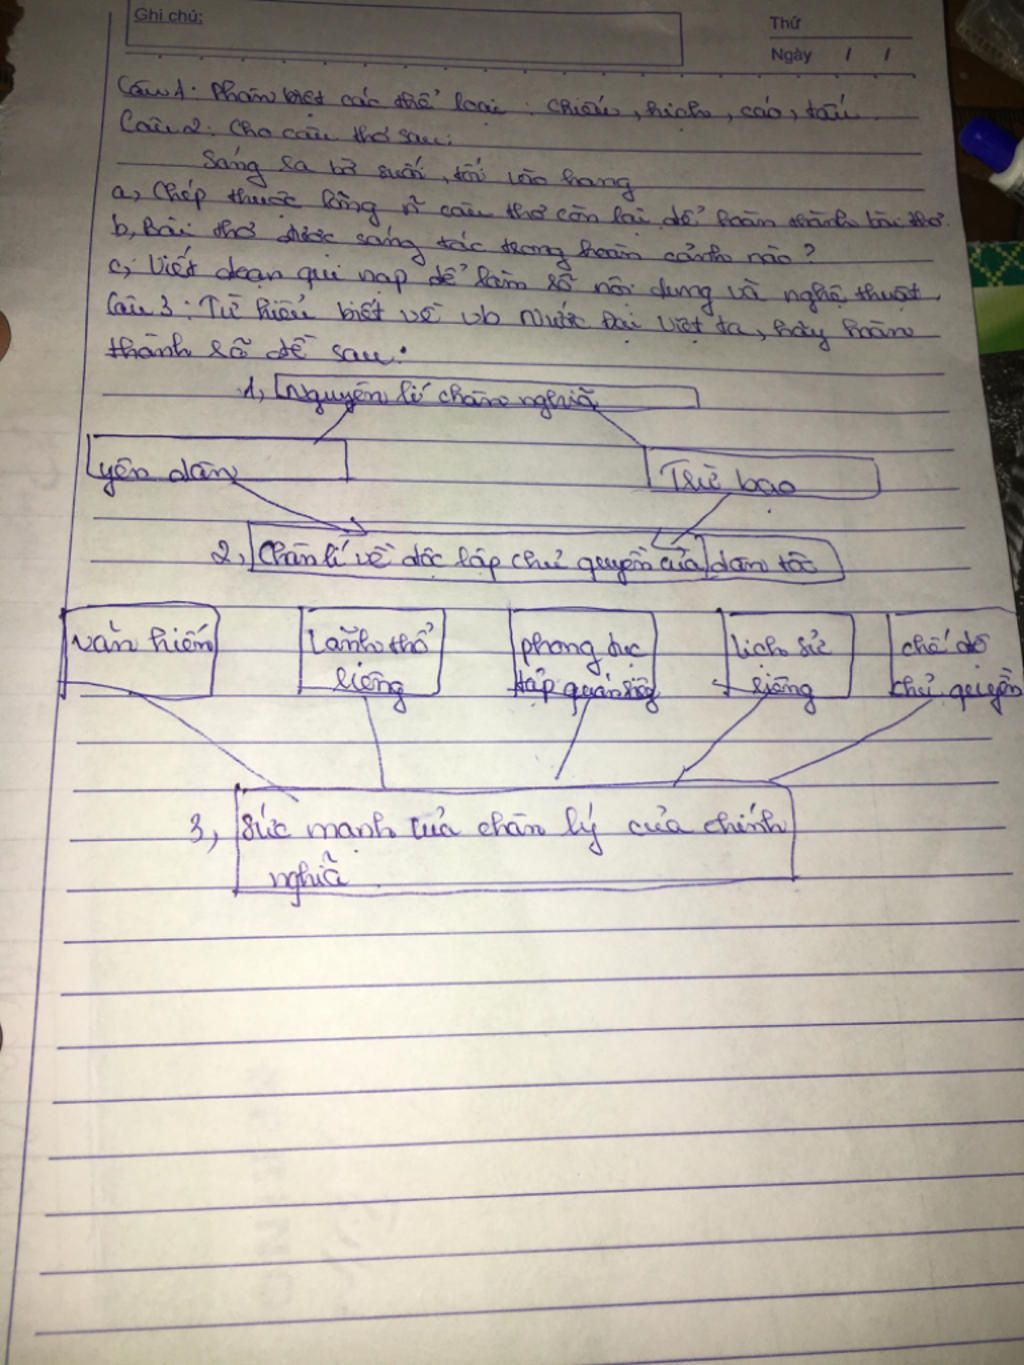 Ghi chú:
Thứ
Ngày / /
Câu 1: Phân biệt các thể loại: chiếu, hịch, cáo, tấu.
Câu 2: Cho câu thơ sau:
Sáng ra bờ suối, tối vào hang
a, Chép thuộc lòng câu thơ còn lại để hoàn thành bài thơ.
b, Bài thơ được sáng tác trong hoàn cảnh nào?
c, Viết đoạn qui nạp để làm rõ nội dung và nghệ thuật.
Câu 3: Từ hiểu biết về vb Nước Đại Việt ta, hãy hoàn
thành sơ đồ sau:
1, Nguyên lí nhân nghĩa
yên dân
Trừ bạo
2, Chân lí về độc lập chủ quyền của dân tộc
văn hiến
Lãnh thổ
riêng
phong tục
tập quán riêng
lịch sử
riêng
chế độ
chủ quyền
3, Sức mạnh của chân lý của chính
nghĩa